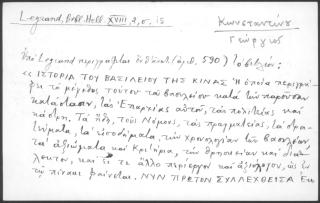 Legrand, Bibl. Hell. XVIII, 2, σ. 15
Κωνσταντίνου
Γεώργιος
Ὑπὸ Legrand περιγράφεται (ἀριθ. 590)
« ΙΣΤΟΡΙΑ ΤΟΥ ΒΑΣΙΛΕΙΟΥ ΤΗΣ ΚΙΝΑΣ Ἡ ὁποία περιγρά-
φει τὸ μέγεθος τούτου τοῦ βασιλείου κατὰ τὴν παροῦσαν
κατάστασιν, τὰς Ἐπαρχίας αὐτοῦ, τὰς πολιτείας καὶ
κάστρη. Τὰ ἤθη, τοὺς Νόμους, τὰς πραγματείας, τὰ
τὰ εἰσοδήματα, τὴν χρονολογίαν τῶν βασιλέων
τὰ ἀξιώματα καὶ Κριτήρια, τὴν θρησκείαν καὶ
καὶ εἴ τι ἄλλο περίεργον καὶ ἀξιόλογον, ὡς ἐν
τῷ πίνακι φαίνεται. ΝΥΝ ΠΡΩΤΟΝ ΣΥΛΛΕΧΘΕΙΣΑ Ἐκ